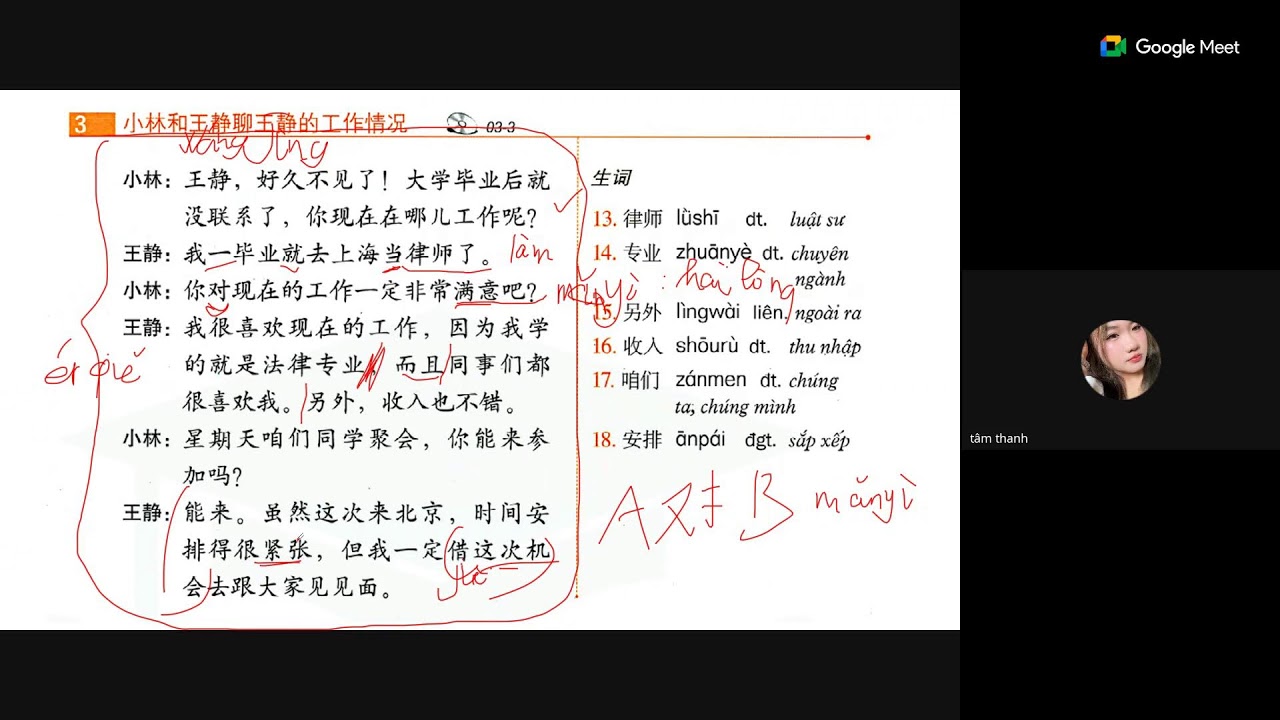 Google Meet
3 小林和王静聊王静的工作情况 03-3
小林：王静，好久不见了！大学毕业后就
没联系了，你现在在哪儿工作呢？
王静：我一毕业就去上海当律师了。 làm
小林：你对现在的工作一定非常满意吧？ mǎnyì : hài lòng
王静：我很喜欢现在的工作，因为我学
的就是法律专业，而且同事们都
ér qiě
很喜欢我。另外，收入也不错。
小林：星期天咱们同学聚会，你能来参
加吗？
王静：能来。虽然这次来北京，时间安
排得很紧张，但我一定借这次机
会去跟大家见见面。
生词
13. 律师 lǜshī dt. luật sư
14. 专业 zhuānyè dt. chuyên
ngành
15. 另外 lìngwài liên. ngoài ra
16. 收入 shōurù dt. thu nhập
17. 咱们 zánmen đt. chúng
ta, chúng mình
18. 安排 ānpái đgt. sắp xếp
A 对 B mǎnyì
tâm thanh